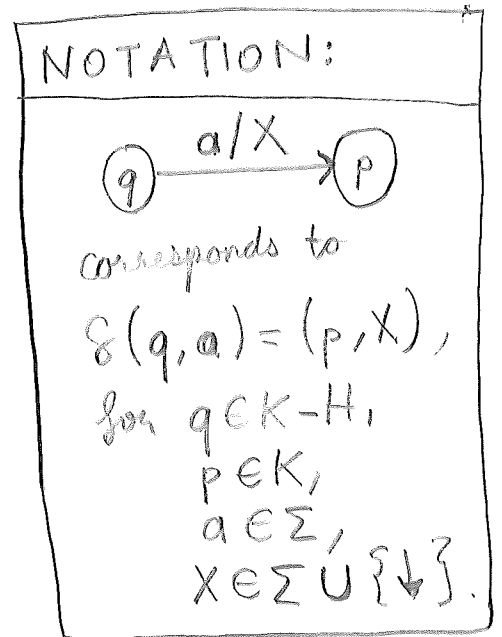 NOTATION:
a/X
q p
corresponds to
δ(q,a)=(p,X),
for q∈K-H,
p∈K,
a∈Σ,
X∈Σ∪{↓}.